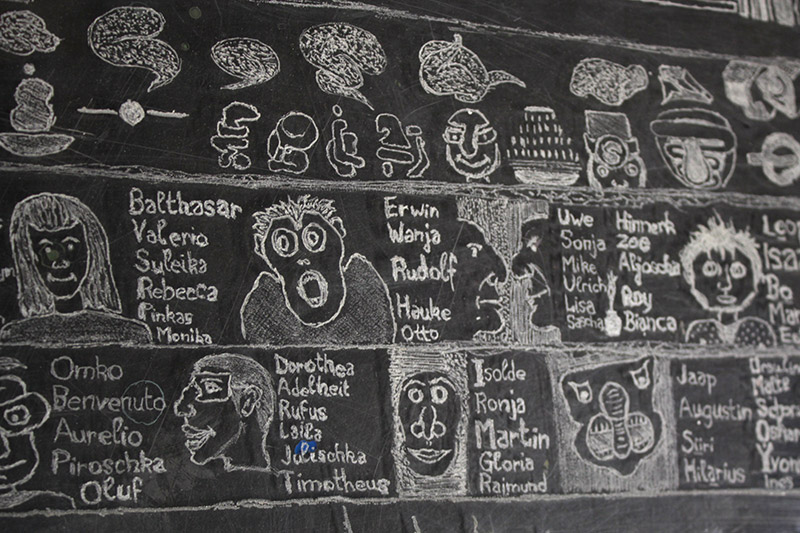 Balthasar
Valerio
Suleika
Rebecca
Pinkas
Monika
Erwin
Wanja
Rudolf
Hauke
Otto
Uwe
Sonja
Mike
Ulrich
Lisa
Sascha
Hinnerk
Zoe
Aljoscha
Roy
Bianca
Leon
Isa
Bo
Mar
Omko
Benvenuto
Aurelio
Piroschka
Oluf
Dorothea
Adelheit
Rufus
Laila
Julischka
Timotheus
Isolde
Ronja
Martin
Gloria
Raimund
Jaap
Augustin
Siiri
Hilarius
Malte
Ines